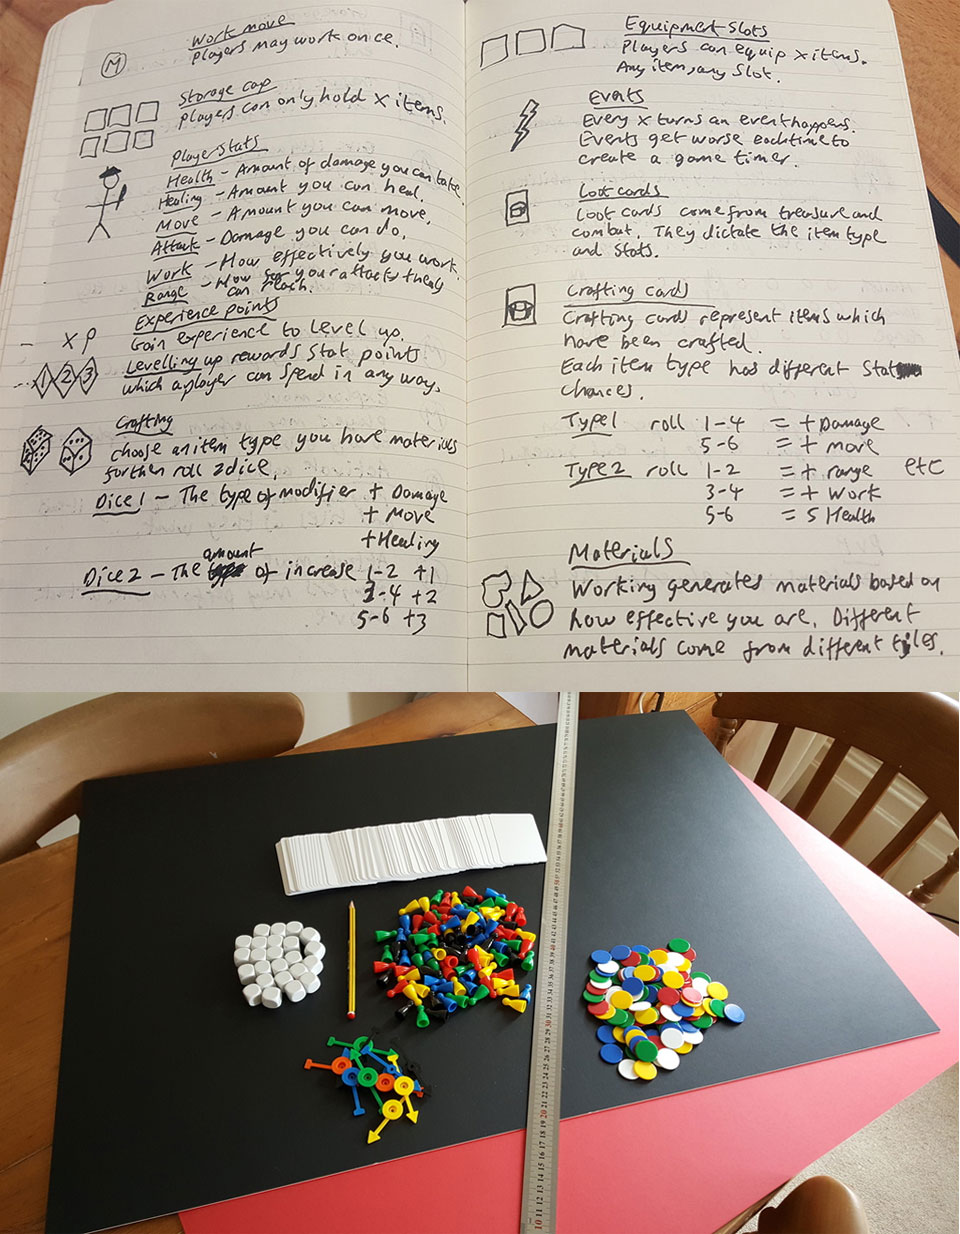 Work move
Players may work once.
M
Storage cap
Players can only hold X items.
Player Stats
Health - Amount of damage you can take.
Healing - Amount you can heal.
Move - Amount you can move.
Attack - Damage you can do.
Work - How effectively you work.
Range - How far your attacks
can reach.
Experience points
XP Gain experience to level up.
1 2 3 Levelling up rewards Stat points
which a player can spend in any way.
Crafting
choose an item type you have materials
for then roll 2 dice.
Dice 1 - The type of modifier + Damage
+ Move
+ Healing
amount
Dice 2 - The of increase 1-2 +1
3-4 +2
5-6 +3
Equipment Slots
Players can equip X items.
Any item, any slot.
Events
Every X turns an event happens.
Events get worse each time to
create a game timer.
Loot cards
Loot cards come from treasure and
combat. They dictate the item type
and stats.
Crafting cards
Crafting cards represent items which
have been crafted.
Each item type has different Stat
chances.
Type 1 roll 1-4 = + Damage
5-6 = + move
Type 2 roll 1-2 = + range etc
3-4 = + Work
5-6 = 5 Health
Materials
Working generates materials based on
how effective you are. Different
materials come from different tiles.